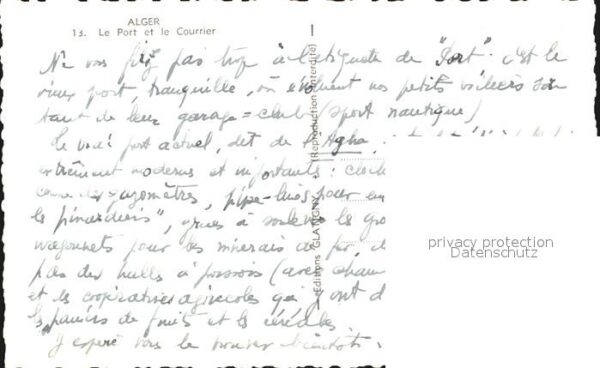 ALGER
13. Le Port et le Courrier
Ne vous fiez pas trop à l'étiquette de "Port" c'est le
vieux port, tranquille, où évoluent nos petits voiliers
tant de leur garage = club (sport nautique)
Le vrai port actuel, dit de l'Agha
modernes et importants :
gazomètres, pipe-lines pour
les pinardiers", grues à soulever les
wagonnets pour les minerais de fer,
des halles à poissons (avec
et les coopératives agricoles qui y ont
de fruits et les céréales.
J'espère vous le montrer bientôt.
Editions GLATIGNY
(Reproduction interdite)
privacy protection
Datenschutz